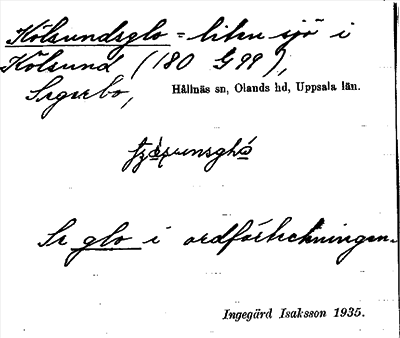 Kölsundsglo = liten sjö i
Kölsund (180 G 99),
Sigrebo, Hållnäs sn, Olands hd, Uppsala län.
Se glo i ordförteckningen.
Ingegärd Isaksson 1935.